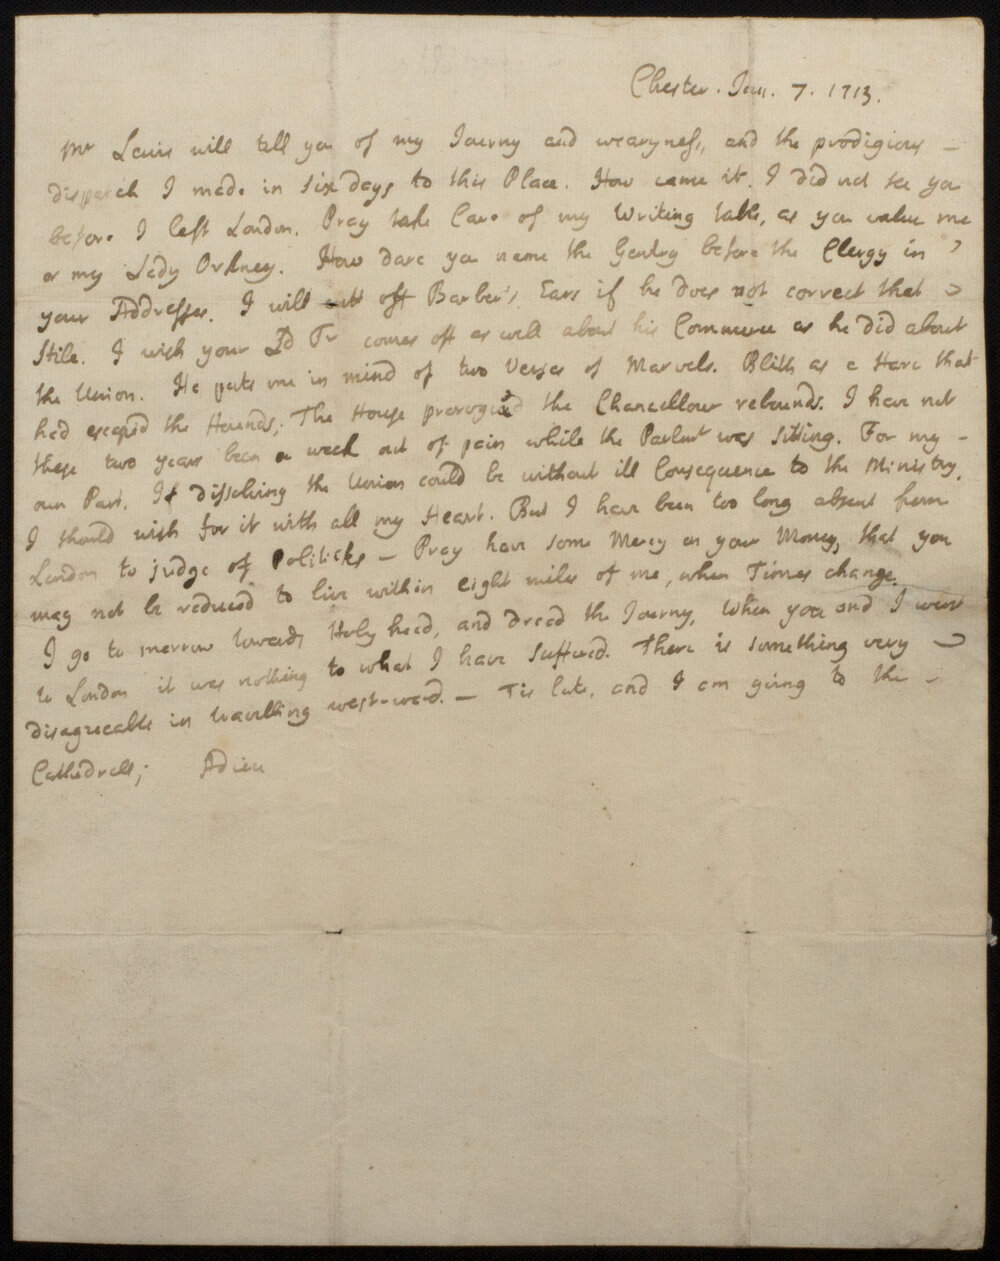 Chester. Jun. 7. 1713.
Mr Lewis will tell you of my Journy and wearyness, and the prodigious –
dispatch I made in six days to this Place. How came it, I did not see you
before I left London. Pray take Care of my Writing table, as you value me
or my Lady Orkney. How dare you name the Gentry before the Clergy in
your Addresses. I will cutt off Barber's Ears if he does not correct that
Stile. I wish your Ld Tr comes off as well about his Commerce as he did about
the Union. He puts me in mind of two Verses of Marvels. Blith as a Hare that
had escaped the Hounds; The House prorogued the Chancellour rebounds. I have not
these two years been a week out of pain while the Parlmt was sitting. For my –
own Part, If dissolving the Union could be without ill Consequence to the Ministry,
I should wish for it with all my Heart. But I have been too long absent from
London to judge of Politicks – Pray have some Mercy on your Money, that you
may not be reduced to live within eight miles of me, when Times change.
I go to morrow towards Holyhead, and dread the Journy, When you and I went
to London it was nothing to what I have suffered. There is something very
disagreeable in travelling west-ward. – Tis late, and I am going to the –
Cathedrall; Adieu